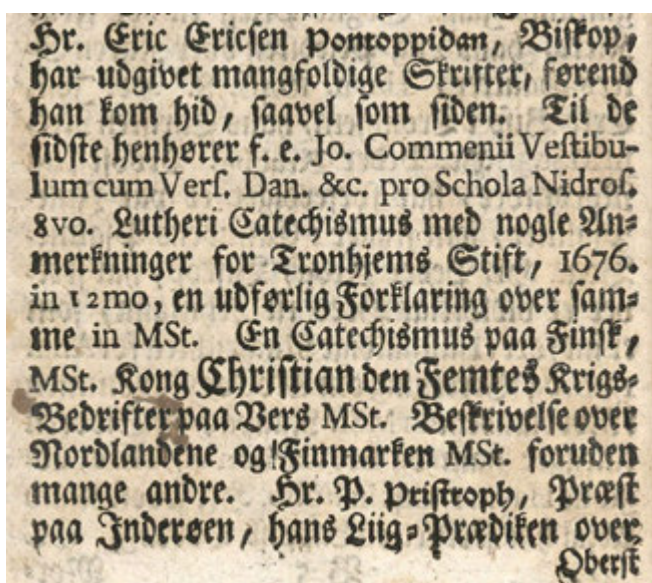 Hr. Eric Ericsen Pontoppidan, Biskop,
har udgivet mangfoldige Skrifter, førend
han kom hid, saavel som siden. Til de
sidste henhører f. e. Jo. Commenii Vestibu-
lum cum Vers. Dan. &c. pro Schola Nidros.
8vo. Lutheri Catechismus med nogle An-
merkninger for Tronhjems Stift, 1676.
in 12mo, en udførlig Forklaring over sam-
me in MSt. En Catechismus paa Finsk,
MSt. Kong Christian den Femtes Krigs-
Bedrifter paa Vers MSt. Beskrivelse over
Nordlandene og Finmarken MSt. foruden
mange andre. Hr. P. Pristroph, Præst
paa Inderøen, hans Liig-Prædiken over
Oberst